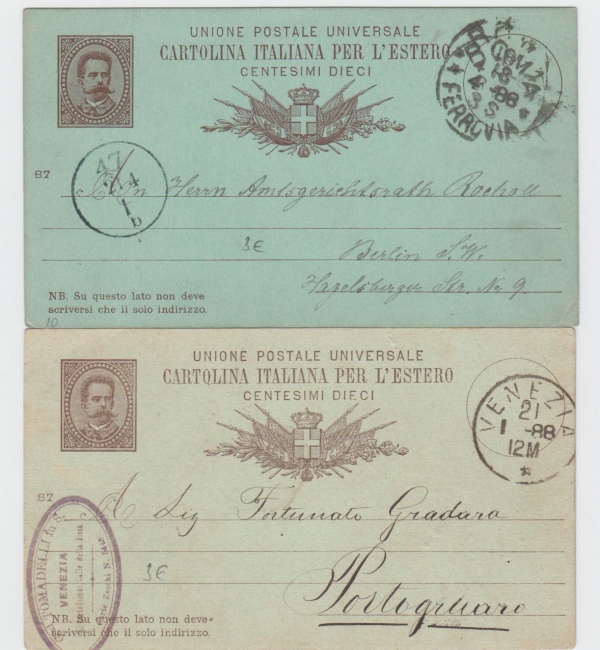 UNIONE POSTALE UNIVERSALE
CARTOLINA ITALIANA PER L'ESTERO
CENTESIMI DIECI
COMO
18
88
FERROVIA
87
47
4
1
b
An Herrn Amtsgerichtsrath Rocholl
3€
Berlin S.W.
Hagelsberger Str. Nr 9.
NB. Su questo lato non deve
scriversi che il solo indirizzo.
10
UNIONE POSTALE UNIVERSALE
CARTOLINA ITALIANA PER L'ESTERO
CENTESIMI DIECI
VENEZIA
21
1 -88
12M
87
A Sig Fortunato Gradara
TOMADELLI
VENEZIA
3€
Portogruaro
NB. Su questo lato non deve
scriversi che il solo indirizzo.